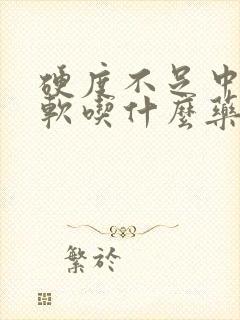 硬度不足中
軟喫什麼藥
繁於